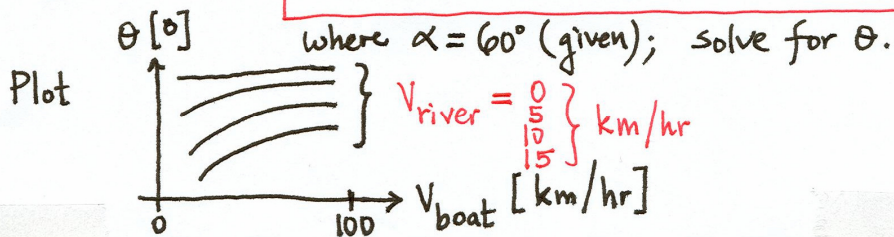 θ [°] where α = 60° (given); solve for θ.
Plot
V river = 0 5 10 15 } km/hr
0 100 V boat [km/hr]